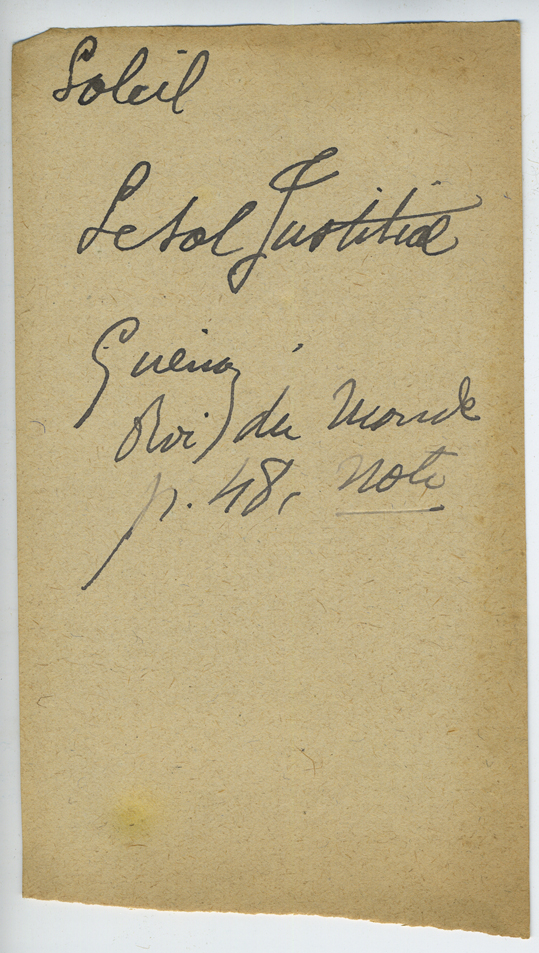 Soleil
Le Sol Justitiae
Guénon,
Roi du Monde
p. 48, note